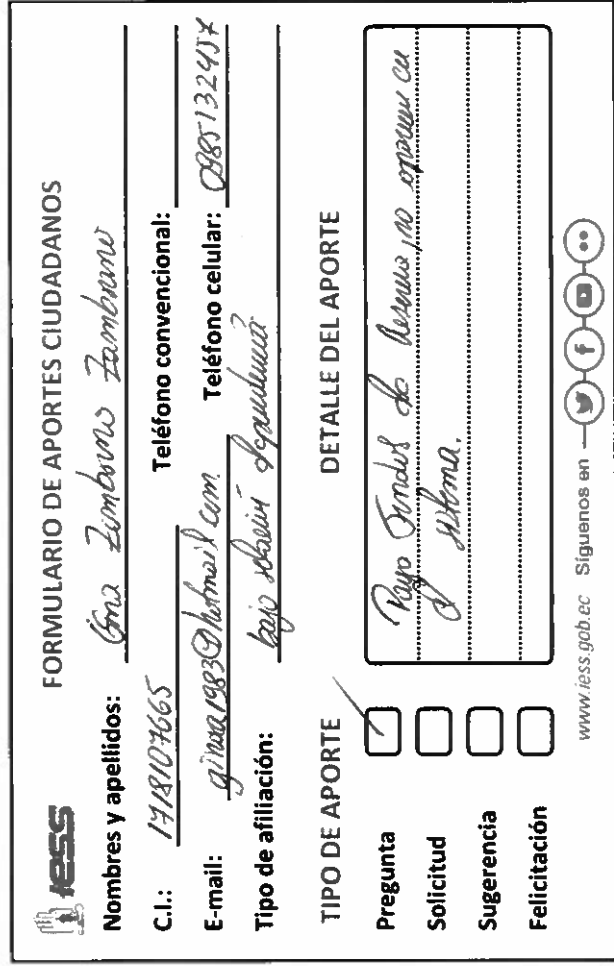 iess
FORMULARIO DE APORTES CIUDADANOS
Nombres y apellidos: Zambrano Zambrano
C.I.: 1718107665 Teléfono convencional:
E-mail: @hotmail.com Teléfono celular: 0985132457
Tipo de afiliación: bajo relación dependencia
TIPO DE APORTE
DETALLE DEL APORTE
Pregunta
Solicitud
Sugerencia
Felicitación
Pago Fondos de Reserva, no aparecen en
el sistema.
www.iess.gob.ec Síguenos en